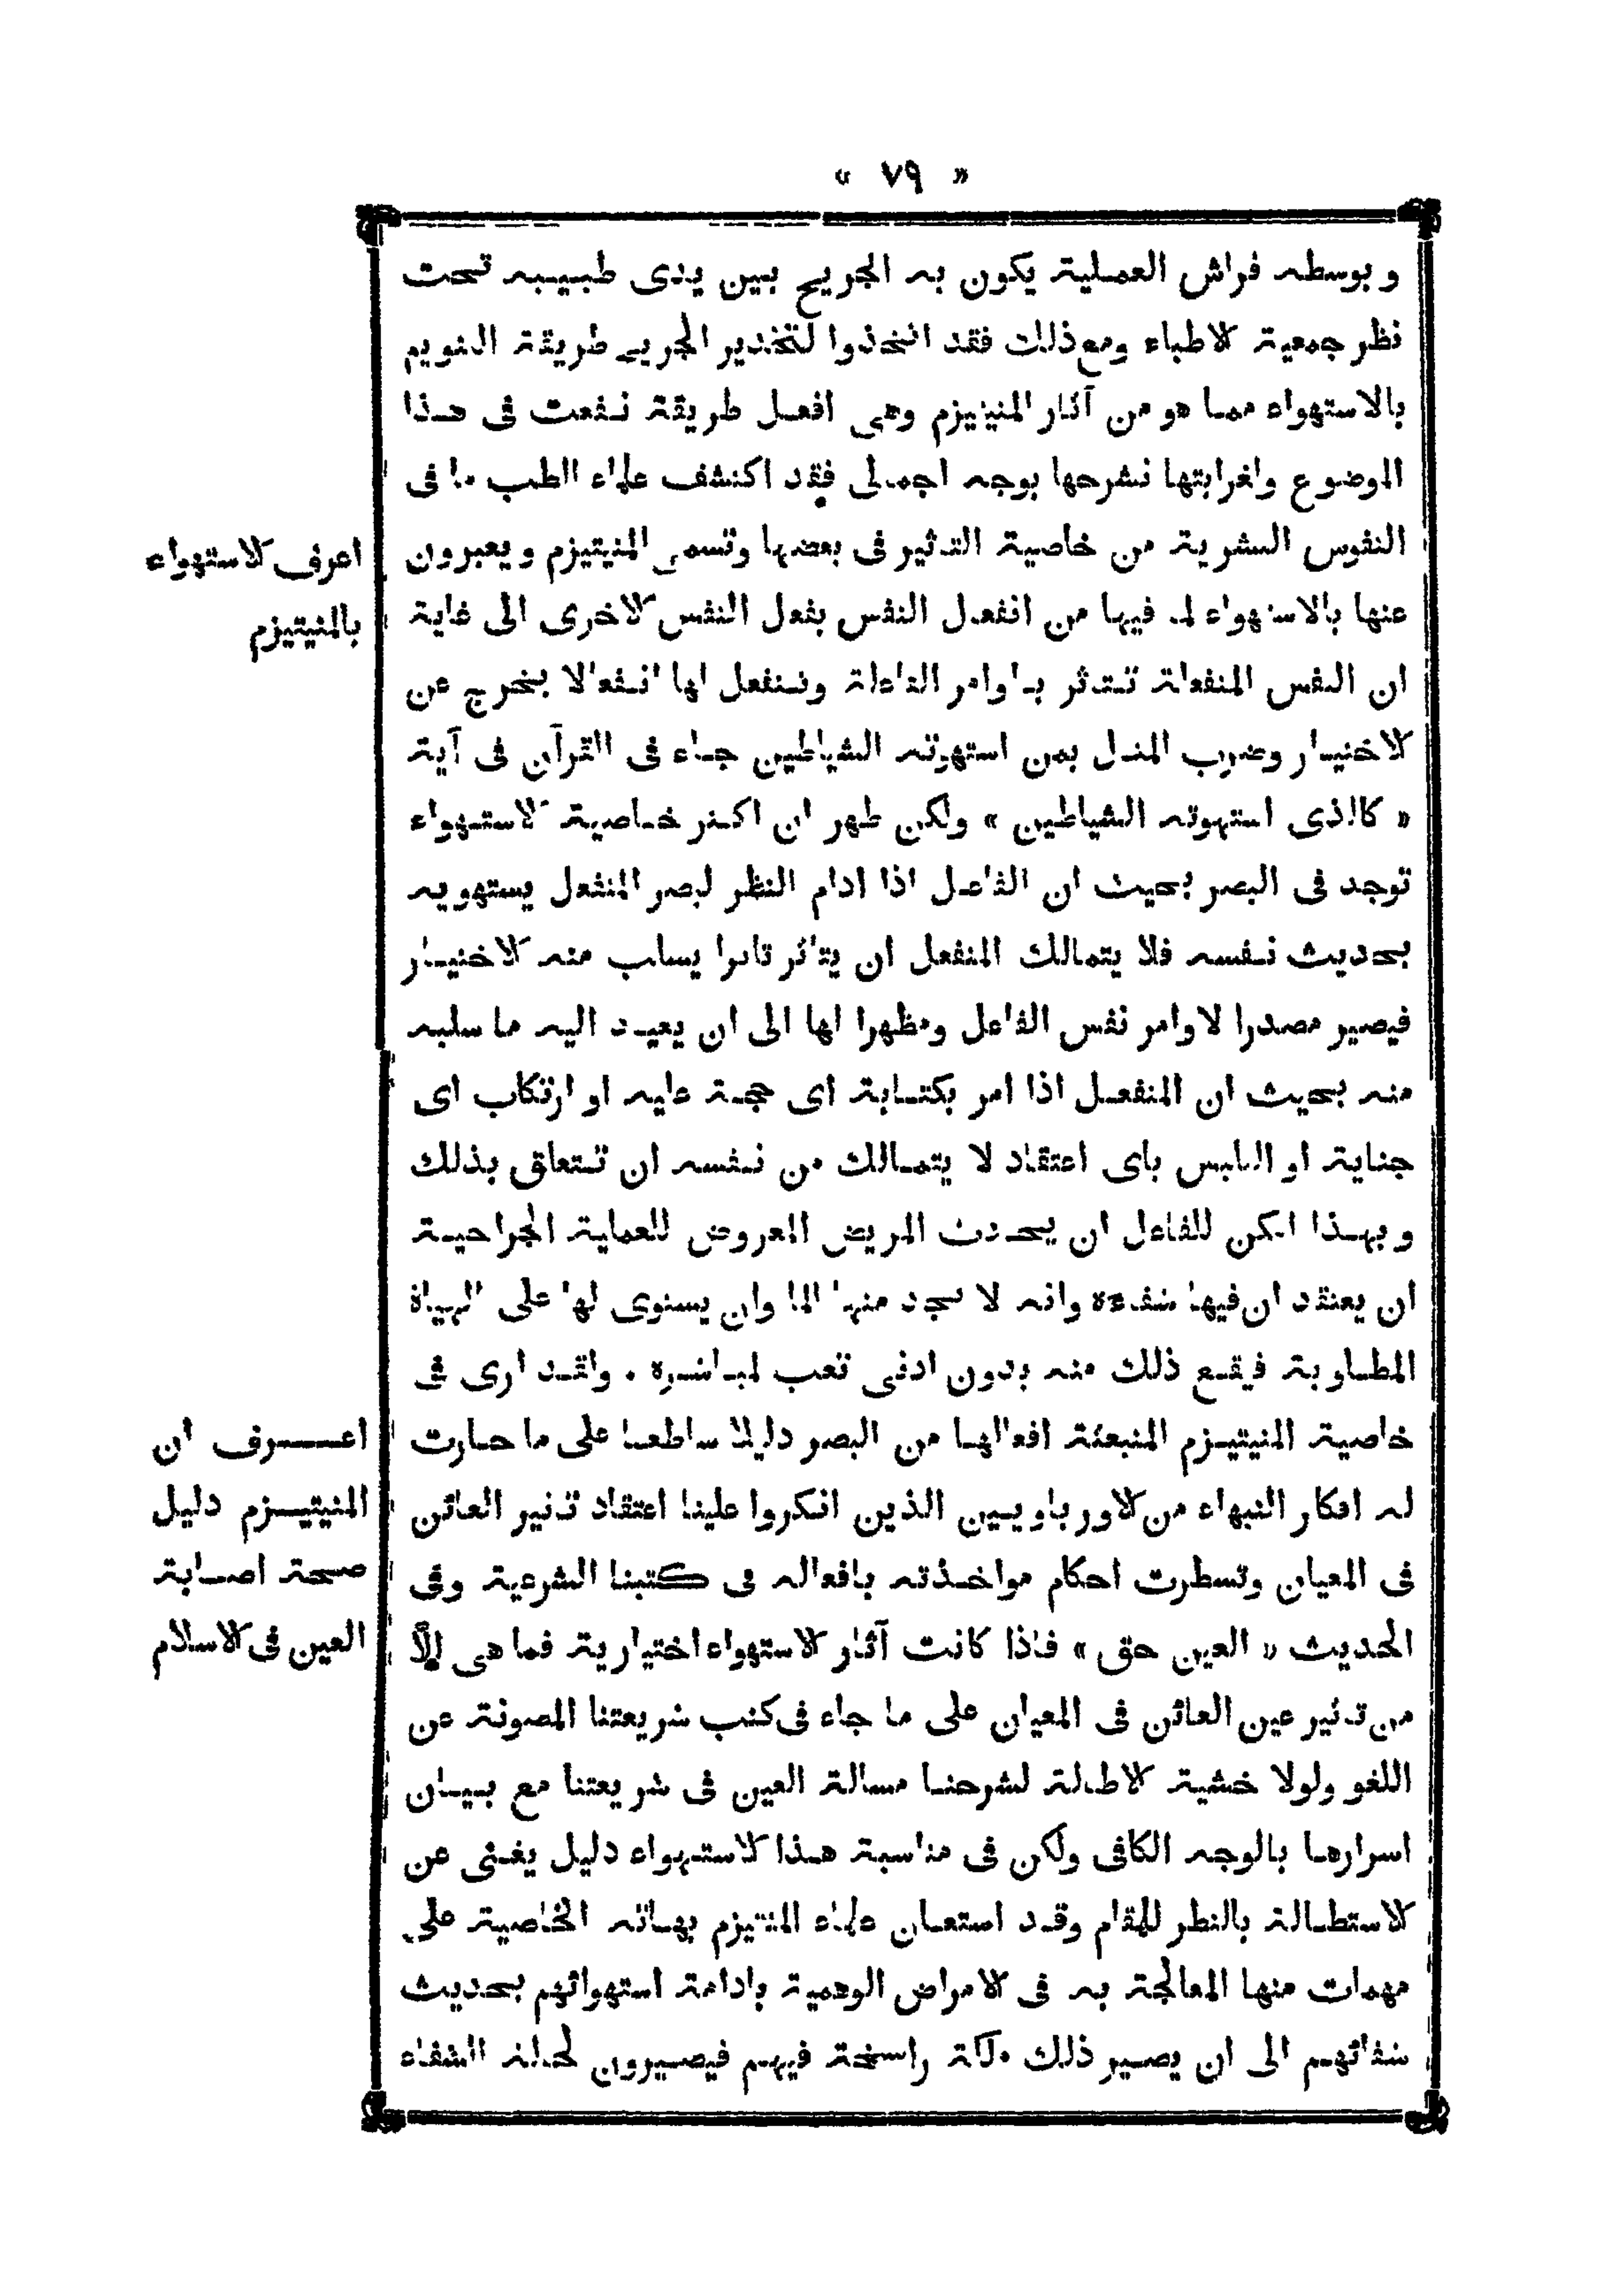 « ٧٩ »
وبوسطه فراش العملية يكون به الجريح بين يدى طبيبه تحت
نظر جمعية الاطباء ومع ذلك فقد اتخذوا لتخدير الجريح طريقة التنويم
بالاستهواء مما هو من آثار المنيتيزم وهى افعل طريقة نفعت فى هذا
الموضوع ولغرابتها نشرحها بوجه اجمالى فقد اكتشف علماء الطب ما فى
النفوس البشرية من خاصية التأثير فى بعضها وتسمى المنيتيزم ويعبرون
عنها بالاستهواء لما فيها من انفعال النفس بفعل النفس الاخرى الى غاية
ان النفس المنفعلة تتأثر باوامر الفاعلة وتنفعل لها انفعالا يخرج عن
الاختيار وضرب المثل بمن استهوته الشياطين جاء فى القرآن فى آية
« كالذى استهوته الشياطين » ولكن ظهر ان اكثر خاصية الاستهواء
توجد فى البصر بحيث ان الفاعل اذا ادام النظر لبصر المنفعل يستهويه
بحديث نفسه فلا يتمالك المنفعل ان يتأثر تاثرا يسلب منه الاختيار
فيصير مصدرا لاوامر نفس الفاعل ومظهرا لها الى ان يعيد اليه ما سلبه
منه بحيث ان المنفعل اذا امر بكتابة اى حجة عليه او ارتكاب اى
جناية او التلبس باى اعتقاد لا يتمالك من نفسه ان تتعلق بذلك
وبهذا امكن للفاعل ان يحدث المريض المعروض للعملية الجراحية
ان يعتقد ان فيها شفاءه وانه لا يجد منها الما وان يستوى لها على الهيأة
المطلوبة فيقع ذلك منه بدون ادنى تعب لمباشره . ولقد ارى فى
خاصية المنيتيزم المنبعثة افعالها من البصر دليلا ساطعا على ما حارت
له افكار النبهاء من الاورباويين الذين انكروا علينا اعتقاد تأثير العائن
فى المعيان وتسطرت احكام مواخذته بافعاله فى كتبنا الشرعية وفى
الحديث « العين حق » فاذا كانت آثار الاستهواء اختيارية فما هى الّا
من تأثير عين العائن فى المعيان على ما جاء فى كتب شريعتنا المصونة عن
اللغو ولولا خشية الاطالة لشرحنا مسالة العين فى شريعتنا مع بيان
اسرارها بالوجه الكافى ولكن فى مناسبة هذا الاستهواء دليل يغنى عن
الاستطالة بالنظر للمقام وقد استعان علماء المنتيزم بهاته الخاصية على
مهمات منها المعالجة به فى الامراض الوهمية بادامة استهوائهم بحديث
شفائهم الى ان يصير ذلك ملكة راسخة فيهم فيصيرون لحالة الشفاء
اعرف الاستهواء
بالمنيتيزم
اعرف ان
المنيتيزم دليل
صحة اصابة
العين فى الاسلام